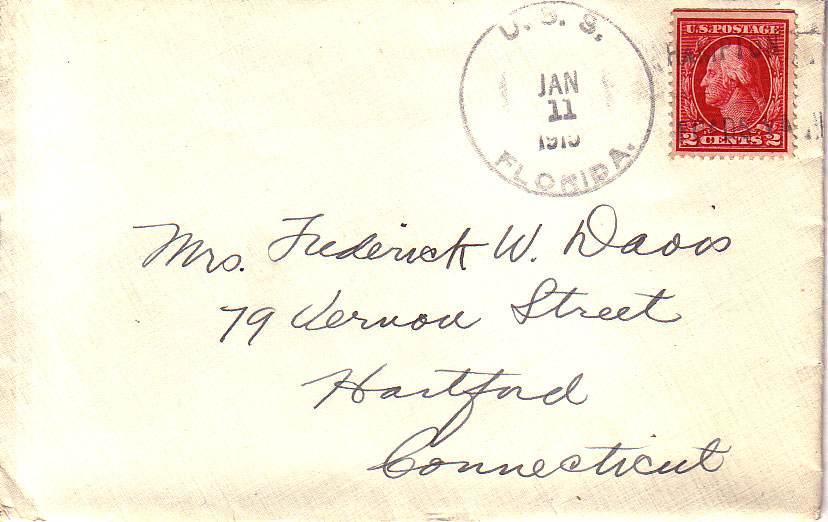 U. S. S.
JAN
11
FLORIDA.
U.S. POSTAGE
HAMPTON
2 CENTS 2
Mrs. Frederick W. Davis
79 Vernon Street
Hartford
Connecticut